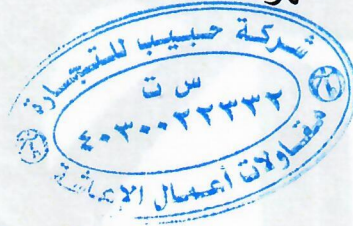 شركة حبيب للتجارة
س ت
٤٠٣٠٠٢٢٣٣٢
مقاولات أعمال الإعاشة